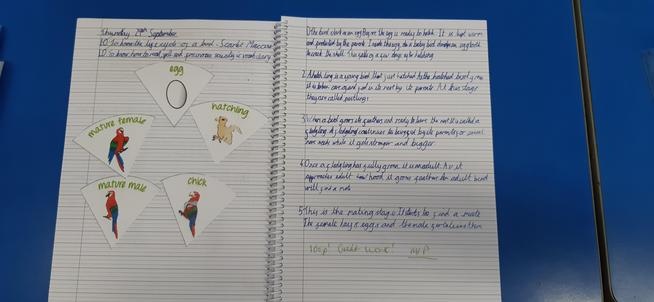 Thursday 29th September
LO To know the life cycle of a bird - Scarlet Maccaw
LO To know how to read, spell and pronounce scientific vocabulary
egg
hatchling
mature female
mature male
chick
1) The bird start as an egg the egg is ready to hatch. It is kept warm
and protected by the parent. Inside the egg, the baby bird develops an egg tooth
to crack the shell. This falls of a few days after hatching
2. A hatchling is a young bird that just hatched
it is taken care of and in its nest by its parents. At this stage
they are called nestlings
3. When a bird grows its feathers and ready to leave the nest it is called a
fledgling. A fledgling continues to being fed by its parents for several
more weeks while it gets stronger and bigger.
4. Once a fledgling has fully grown it is an adult. As it
approaches adult hood it grows feathers. An adult bird
will find a mate
5. This is the mating stage. It starts to find a mate
The female lays eggs and the male fertalises them
Great work!